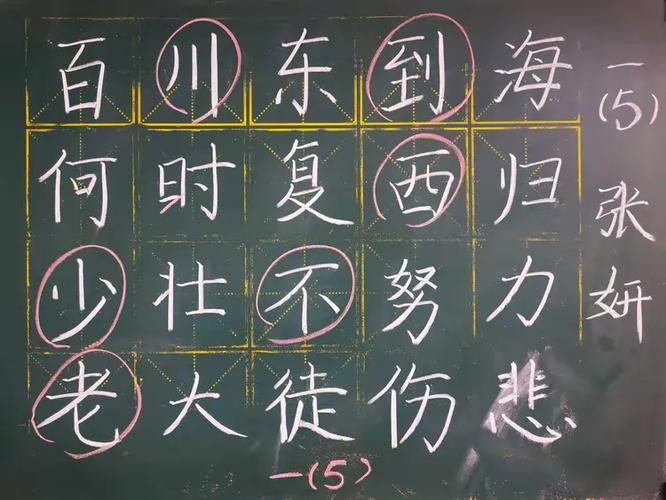 百川东到海
何时复西归
少壮不努力
老大徒伤悲
一(5)
张妍
一(5)